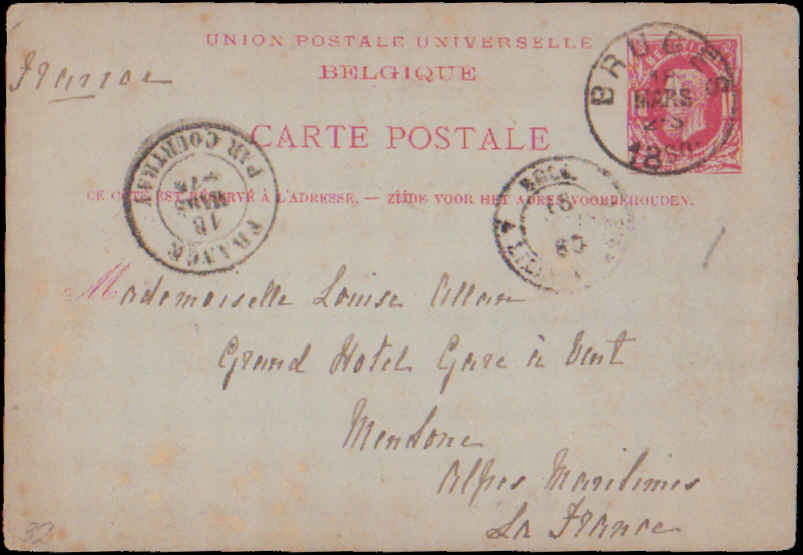 UNION POSTALE UNIVERSELLE
BELGIQUE
France
CARTE POSTALE
BRUGES
MARS
18
FRANCE
PAR COURTRAY
18
MARS
CE CÔTÉ EST RÉSERVÉ À L'ADRESSE. — ZIJDE VOOR HET ADRES VOORBEHOUDEN.
Mademoiselle Louise Allan
Grand Hotel Gare à Vent
Mentone
Alpes Maritimes
La France
32